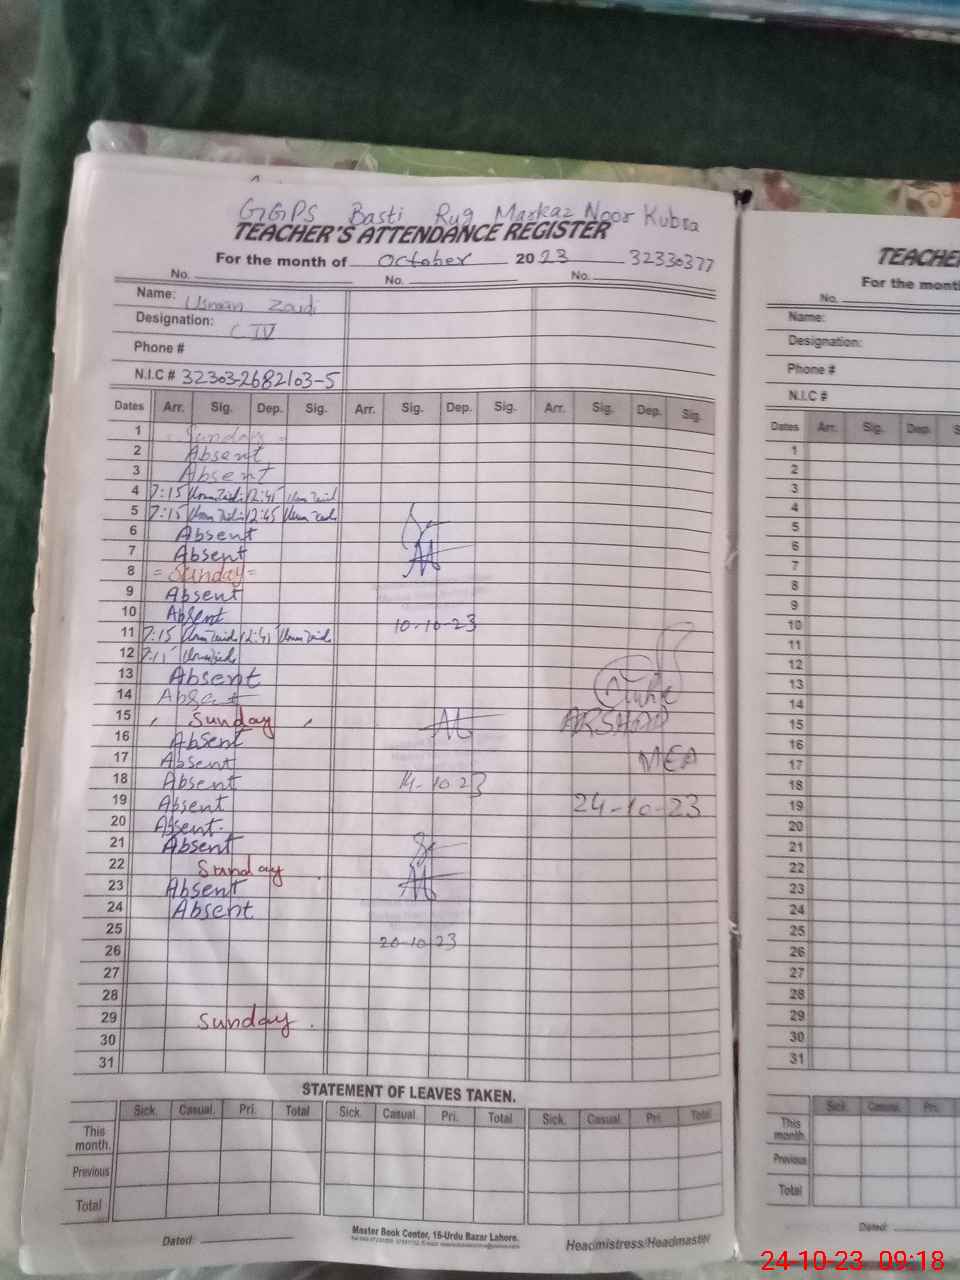 GGPS Basti Rug Markaz Noor Kubra
TEACHER'S ATTENDANCE REGISTER
For the month of October 2023 32330377
No. No. No.
Name: Usman Zaidi
Designation:
Phone #
N.I.C # 32303-2682103-5
Dates Arr. Sig. Dep. Sig. Arr. Sig. Dep. Sig. Arr. Sig. Dep. Sig.
1 Sunday
2 Absent
3 Absent
4 7:15 12:45
5 7:15 12:45
6 Absent
7 Absent
8 = Sunday =
9 Absent
10 Absent 10-10-23
11 7:15 12:45
12 7:15
13 Absent
14 Absent
15 Sunday ARSHAD
16 Absent
17 Absent MEA
18 Absent 14-10-23
19 Absent 24-10-23
20 Absent.
21 Absent
22 Sunday
23 Absent
24 Absent
25
26 20-10-23
27
28
29 Sunday.
30
31
STATEMENT OF LEAVES TAKEN.
Sick. Casual. Pri. Total Sick. Casual. Pri. Total Sick. Casual Pri. Total
This month.
Previous
Total
Dated:
Master Book Center, 15-Urdu Bazar Lahore.
Headmistress/Headmaster
TEACHE
For the mont
No.
Name:
Designation:
Phone #
N.I.C #
Dates Arr. Sig. Dep. S
1
2
3
4
5
6
7
8
9
10
11
12
13
14
15
16
17
18
19
20
21
22
23
24
25
26
27
28
29
30
31
Sick. Casual. Pri.
This month.
Previous
Total
Dated:
24-10-23 09:18